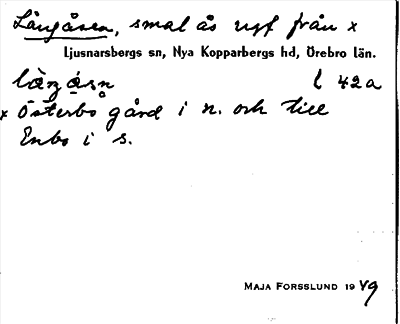 Långåsen, smal ås ugf från x
Ljusnarsbergs sn, Nya Kopparbergs hd, Örebro län.
låŋåsn l 42a
x Österbo gård i n. och till
Enbo i s.
MAJA FORSSLUND 1949